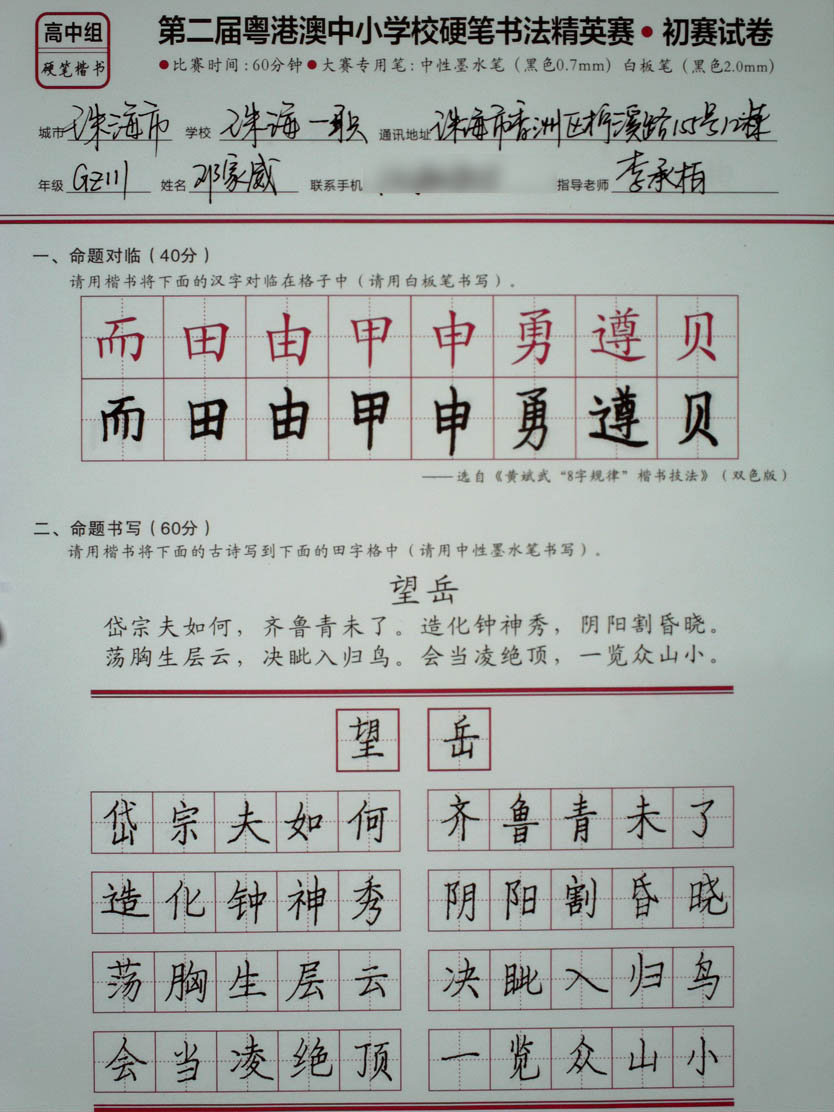 高中组
硬笔楷书
第二届粤港澳中小学校硬笔书法精英赛•初赛试卷
●比赛时间:60分钟●大赛专用笔:中性墨水笔(黑色0.7mm)白板笔(黑色2.0mm)
城市 珠海市 学校 珠海一职 通讯地址 珠海市香洲区柠溪路155号12栋
年级 GZ111 姓名 邓家威 联系手机 指导老师 李承柏
一、命题对临(40分)
请用楷书将下面的汉字对临在格子中(请用白板笔书写)。
而田由甲申勇遵贝
而田由甲申勇遵贝
——选自《黄斌武“8字规律”楷书技法》(双色版)
二、命题书写(60分)
请用楷书将下面的古诗写到下面的田字格中(请用中性墨水笔书写)。
望岳
岱宗夫如何,齐鲁青未了。造化钟神秀,阴阳割昏晓。
荡胸生层云,决眦入归鸟。会当凌绝顶,一览众山小。
望岳
岱宗夫如何 齐鲁青未了
造化钟神秀 阴阳割昏晓
荡胸生层云 决眦入归鸟
会当凌绝顶 一览众山小